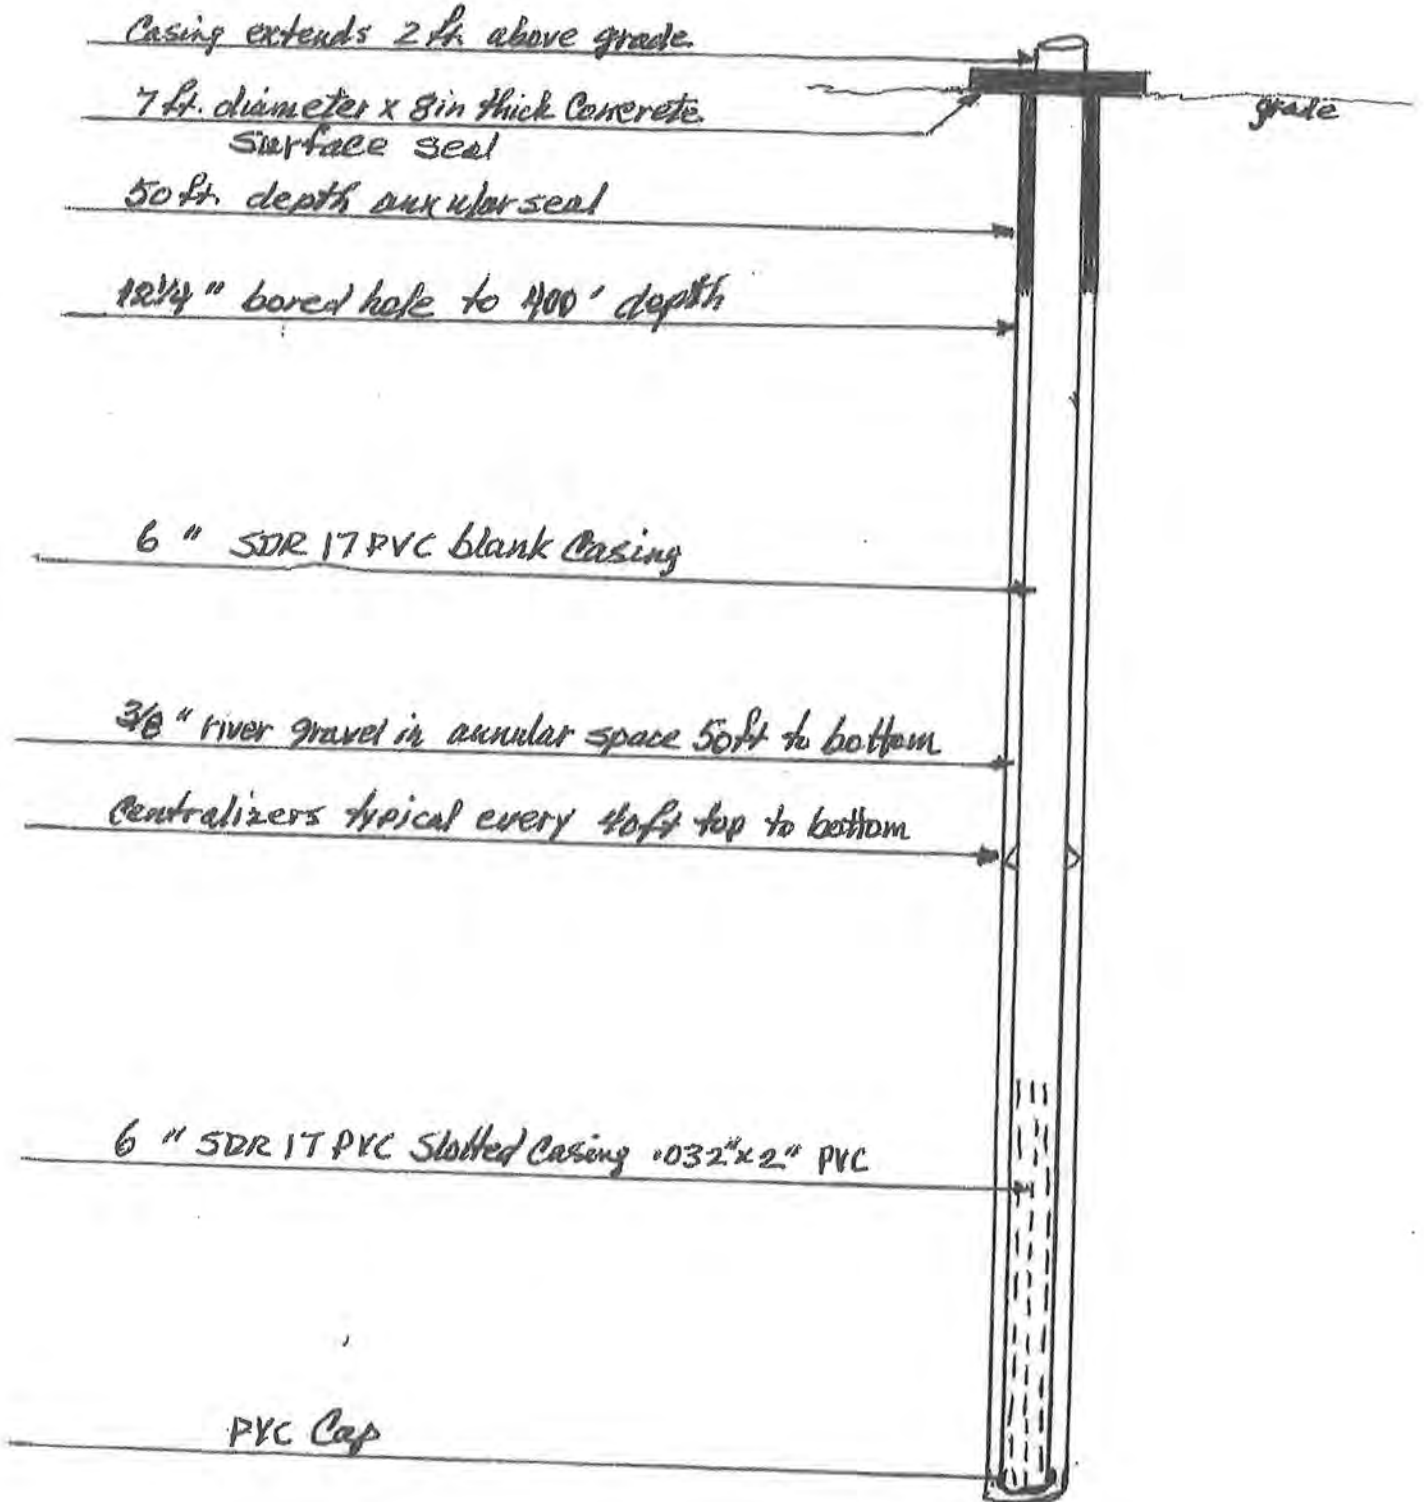 Casing extends 2 ft. above grade
7 ft. diameter x 8in thick Concrete
Surface seal
grade
50 ft. depth annular seal
12 1/4" bored hole to 400' depth
6" SDR 17 PVC blank Casing
3/8" river gravel in annular space 50ft to bottom
Centralizers typical every 40ft top to bottom
6" SDR 17 PVC Slotted Casing .032"x2" PVC
PVC Cap